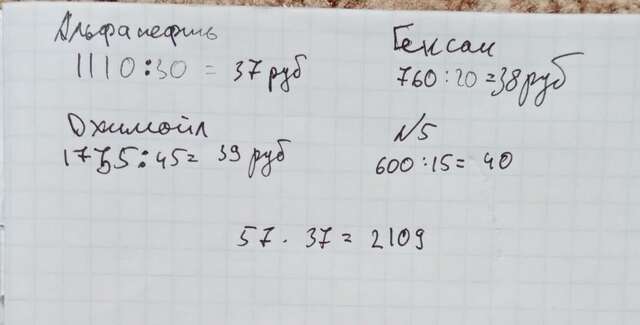 Альфанефть
1110:30 = 37 руб
Гексан
760:20 = 38 руб
Охимойл
1755:45 = 39 руб
№5
600:15 = 40
57 · 37 = 2109